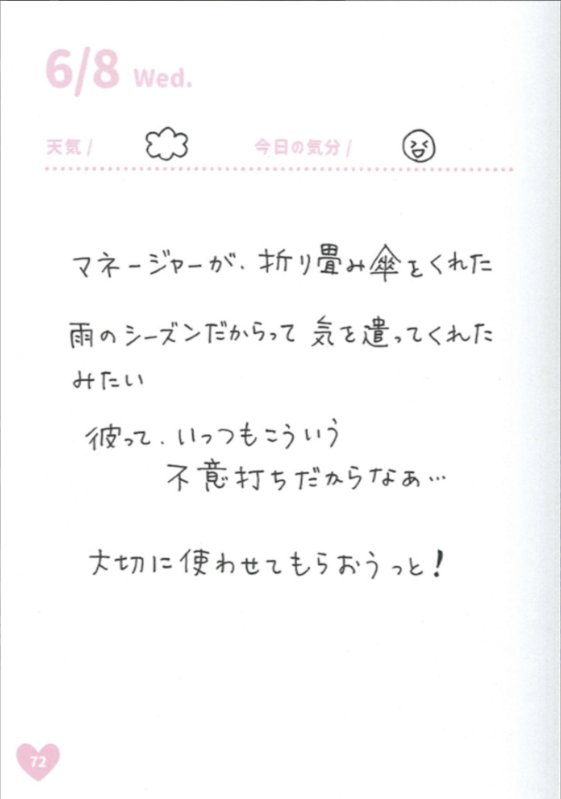 6/8 Wed.
天気 / 今日の気分 /
マネージャーが、折り畳み傘をくれた
雨のシーズンだからって 気を遣ってくれた
みたい
彼って、いっつもこういう
不意打ちだからなぁ…
大切に使わせてもらおうっと!
72